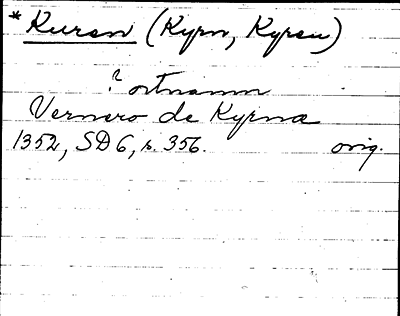 *Kuren (Kyrn, Kyren)
? ortnamn
Vernero de Kyrna
1352, SD 6, s. 356. orig.